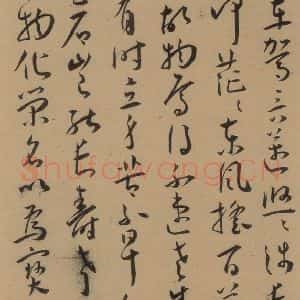 車駕言邁悠〻涉長
何茫〻東風搖百
故物焉得不速老
有時立身苦不早
石豈能長壽考
物化榮名以為寶
Shufawang.cn